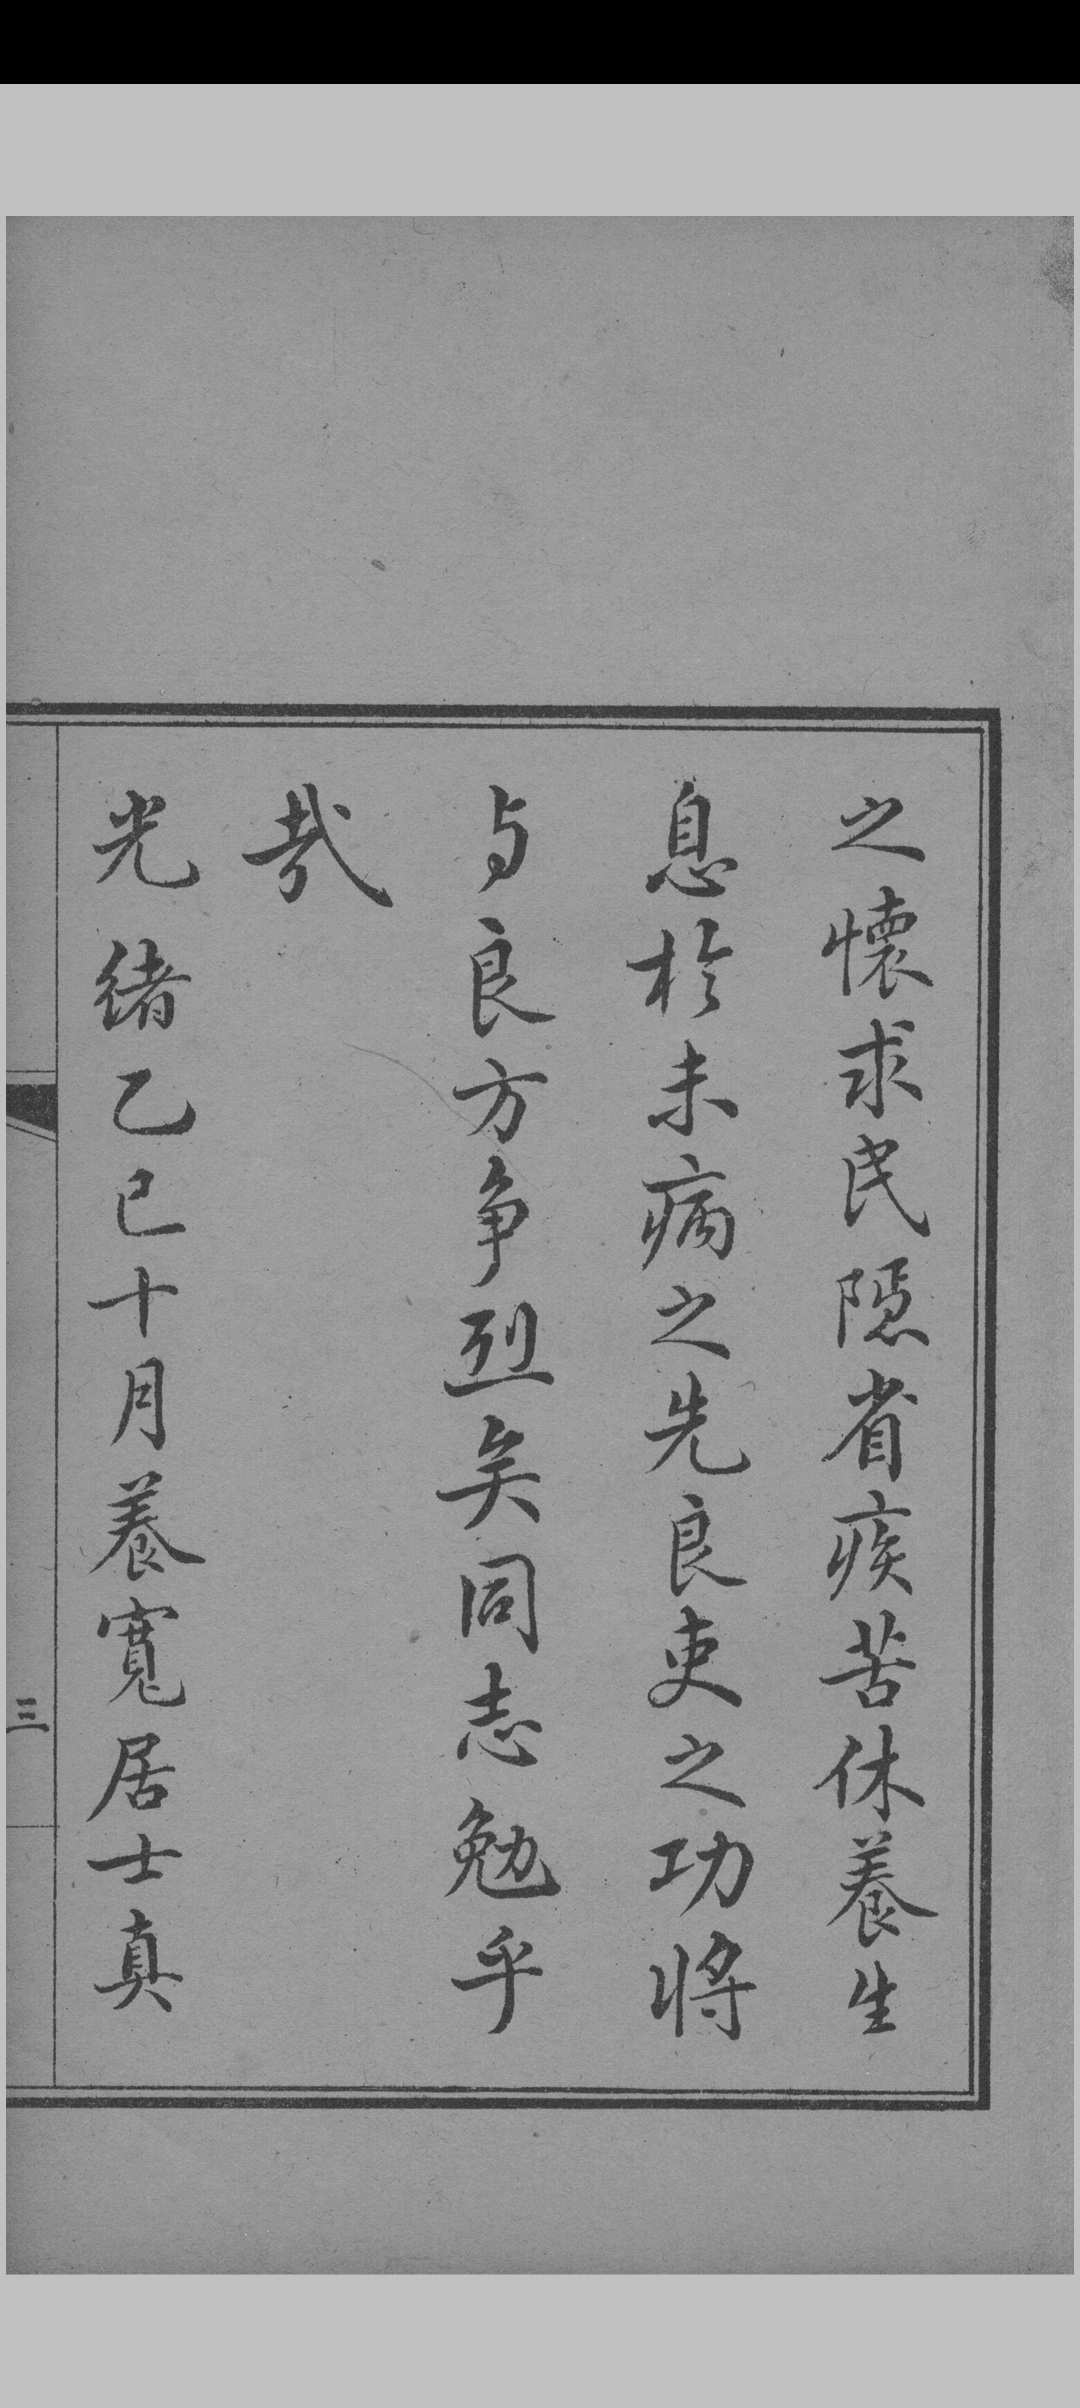 之懷求民隱省疾苦休養生
息於未病之先良吏之功將
与良方争烈矣同志勉乎
哉
光緒乙巳十月養寬居士真
三